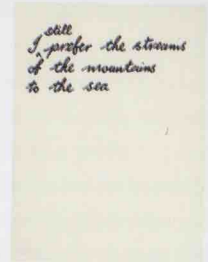 still
I ^ prefer the streams
of the mountains
to the sea